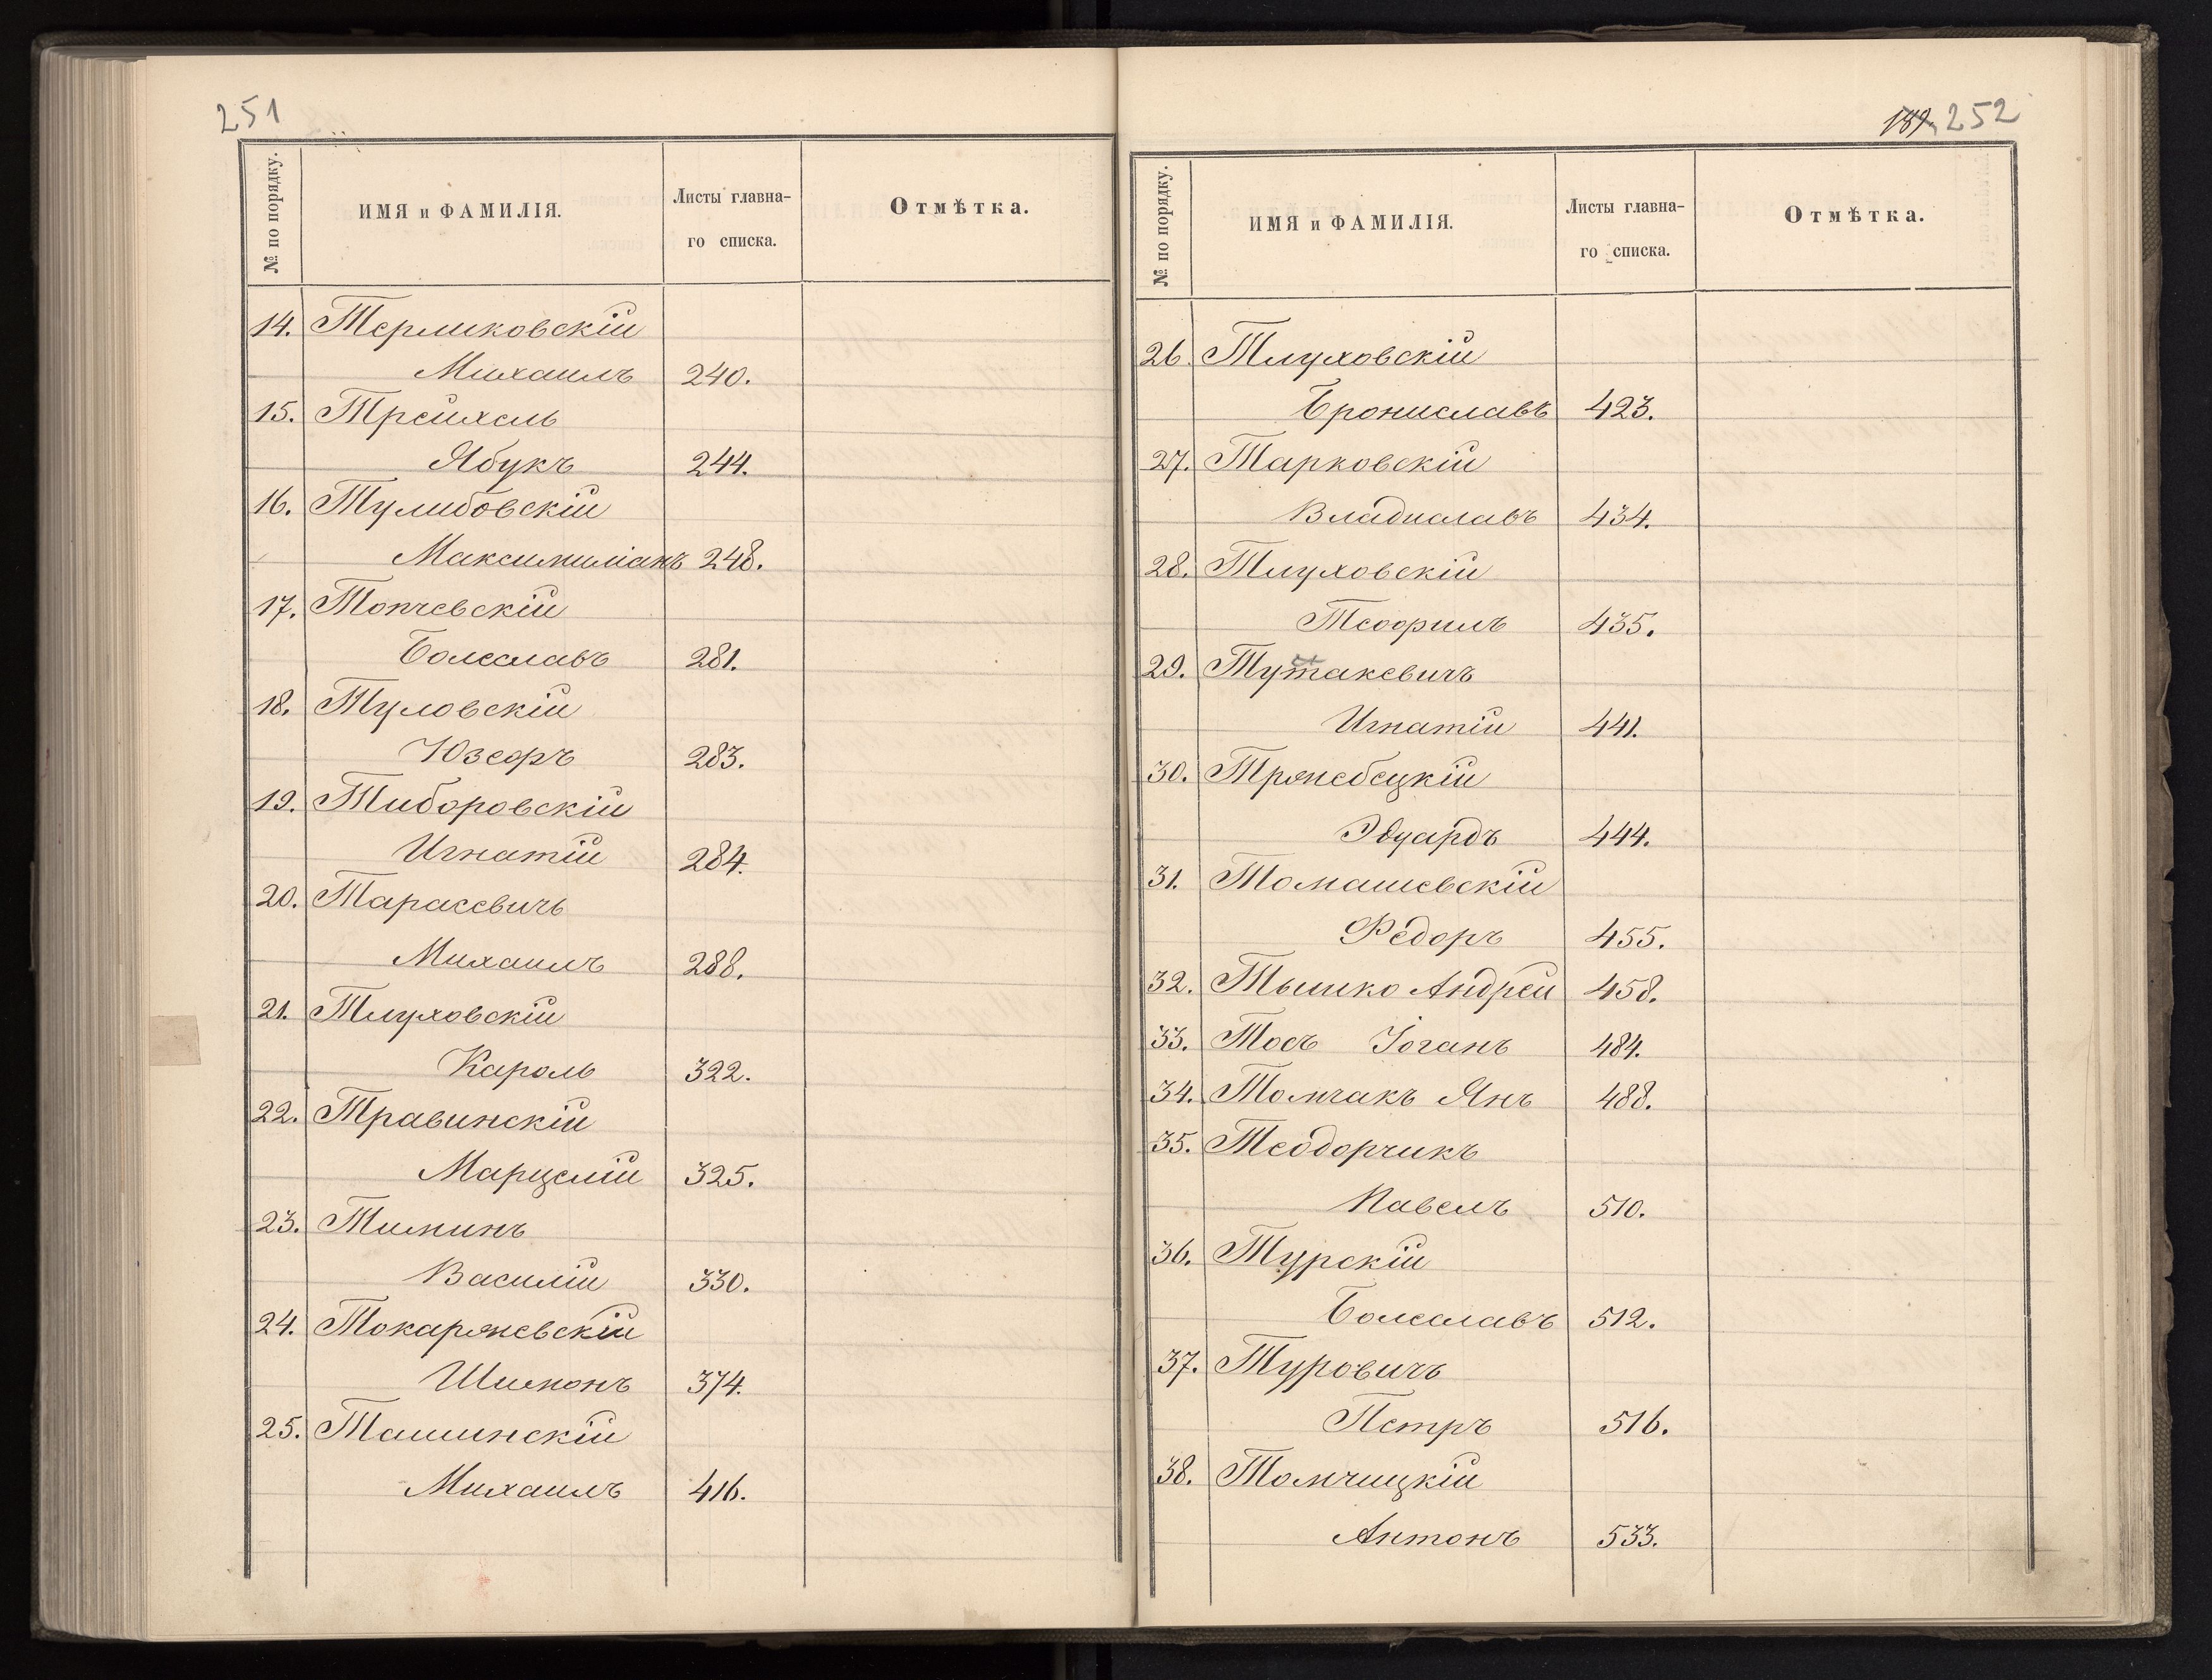 251
№ по порядку.
ИМЯ и ФАМИЛІЯ.
Листы главна-
го списка.
Отмѣтка.
14. Терликовскій
Михаилъ 240.
15. Трейхель
Ябукъ 244.
16. Тулибовскій
Максимиліанъ 248.
17. Топчевскій
Болеславъ 281.
18. Туловскій
Юзефъ 283.
19. Тиборовскій
Игнатій 284.
20. Тарасевичъ
Михаилъ 288.
21. Тлуховскій
Кароль 322.
22. Травинскій
Марцелій 325.
23. Тиминъ
Василій 330.
24. Токаржевскій
Шимонъ 374.
25. Ташинскій
Михаилъ 416.
189, 252
№ по порядку.
ИМЯ и ФАМИЛІЯ.
Листы главна-
го списка.
Отмѣтка.
26. Тлуховскій
Брониславъ 423.
27. Тарковскій
Владиславъ 434.
28. Тлуховскій
Теофилъ 435.
29. Тутакевичъ
Игнатій 441.
30. Тржебецкій
Эдуардъ 444.
31. Томашевскій
Федоръ 455.
32. Тышко Андрей 458.
33. Тосъ Іоганъ 484.
34. Томчакъ Янъ 488.
35. Теодорчикъ
Павелъ 510.
36. Турскій
Болеславъ 512.
37. Туровичъ
Петръ 516.
38. Томчицкій
Антонъ 533.